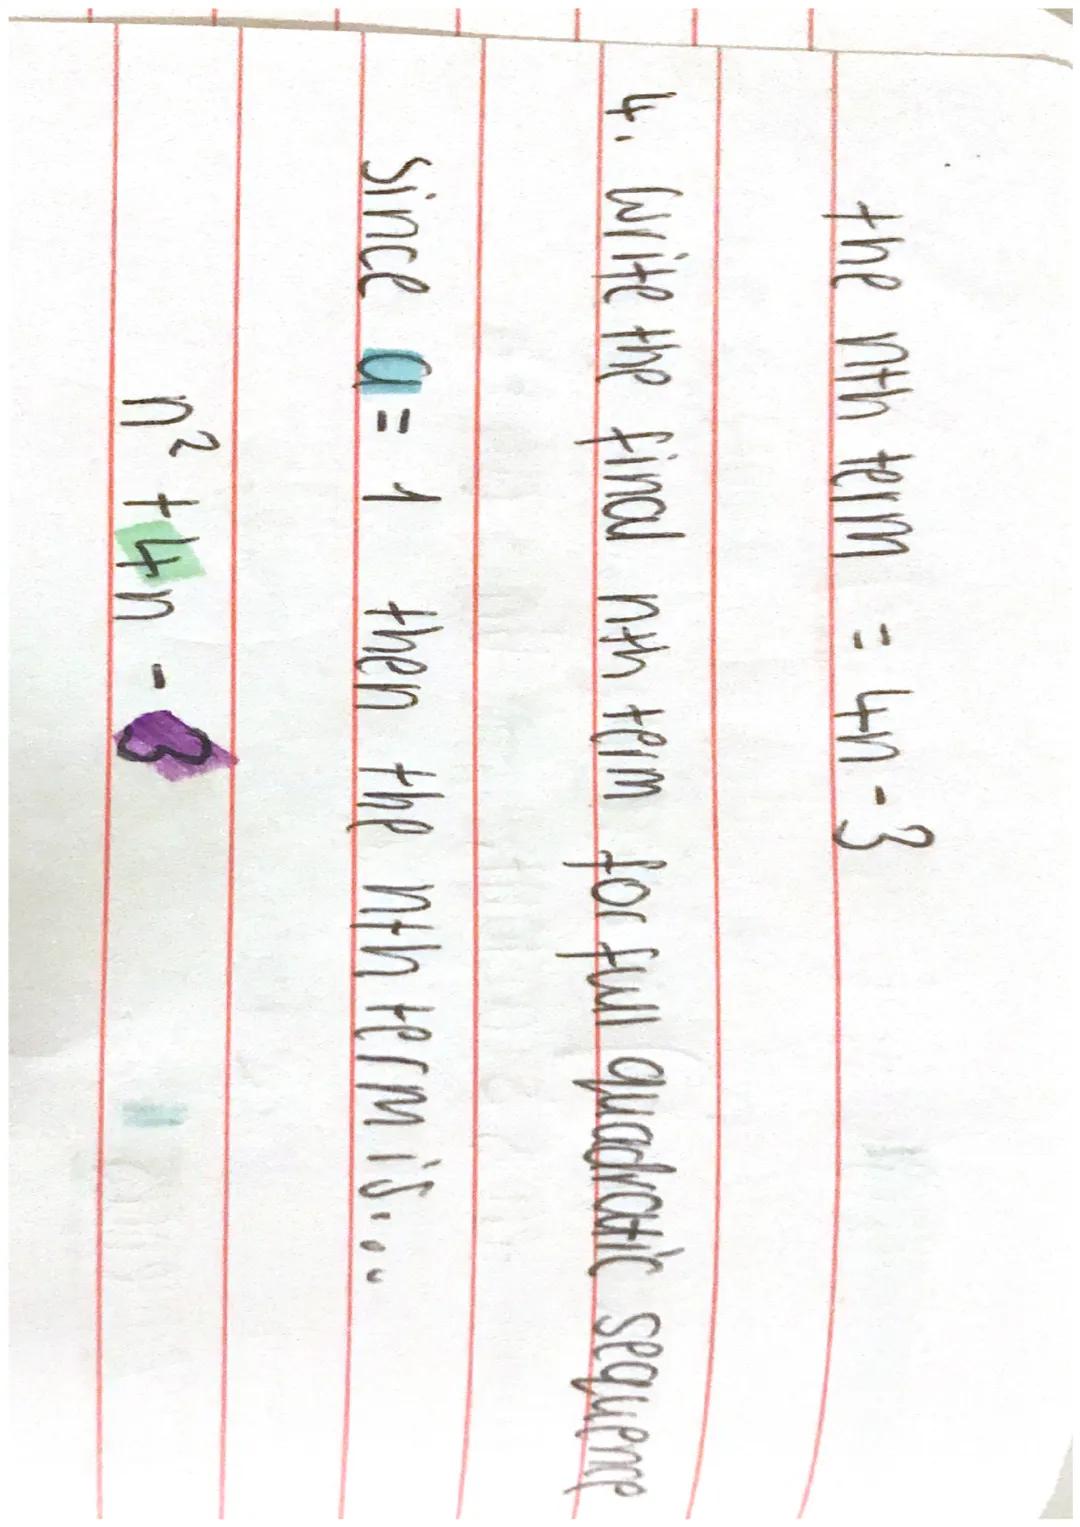 the nth term = 4n - 3
4. Write the final nth term for full quadratic sequence
Since a = 1 then the nth term is...
n² + 4n - 3